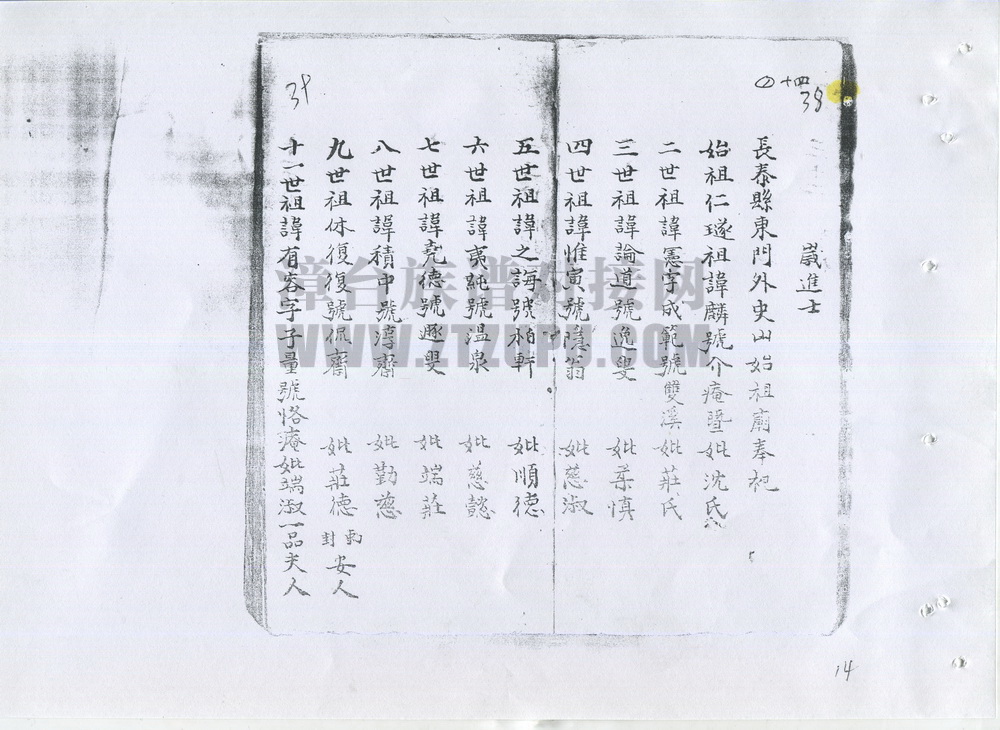 十四
38
歲進士
長泰縣東門外史山始祖廟奉祀
始祖仁璲祖諱麟號介庵暨妣沈氏
二世祖諱憲字成範號雙溪妣莊氏
三世祖諱論道號逸叟 妣柔慎
四世祖諱惟寅號隱翁 妣慈淑
五世祖諱之誨號柏軒 妣順德
六世祖諱夷純號温泉 妣慈懿
七世祖諱堯德號遯叟 妣端莊
八世祖諱積中號淳齋 妣勤慈
九世祖休復復號侃齋 妣莊德 勅封 安人
十一世祖諱有容字子量號恪庵妣端淑一品夫人
39
14
漳台族谱对接网
WWW.ZTZUPU.COM